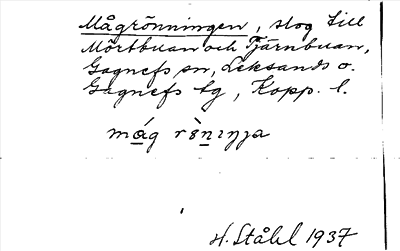 Mågrönningen, slog till
Mörtbuan och Tjärnbuan,
Gagnefs sn, Leksands o.
Gagnefs tg, Kopp. l.
måg rö̀nıŋa
H. Ståhl 1937